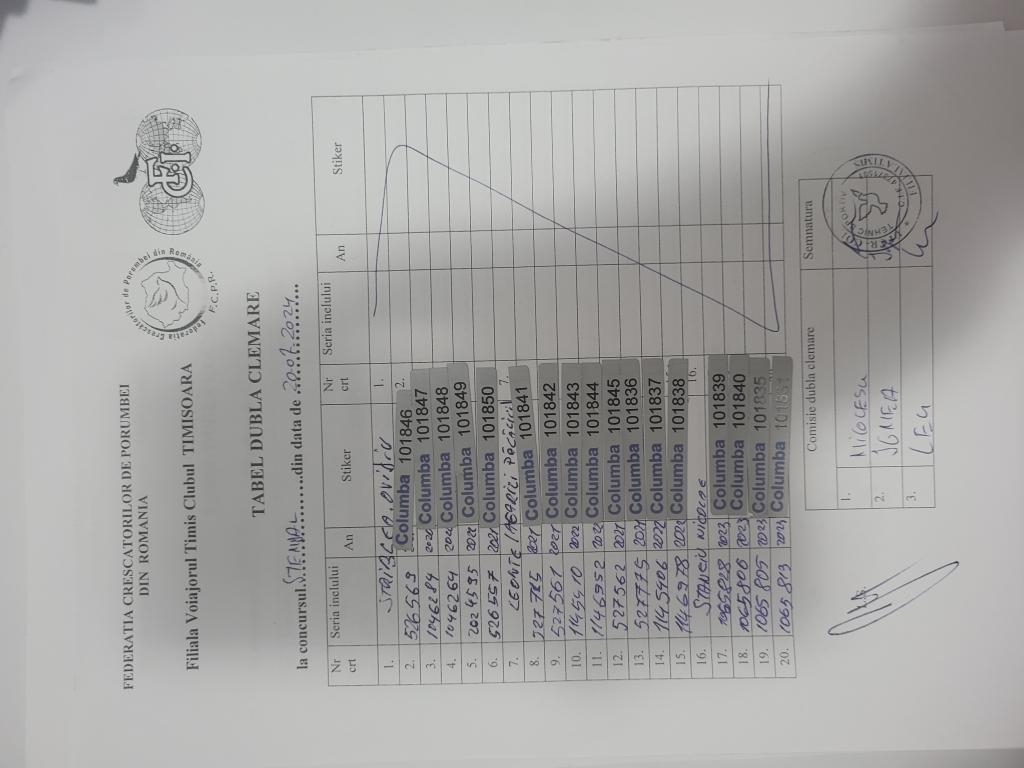 FEDERATIA CRESCATORILOR DE PORUMBEI
DIN ROMANIA
Filiala Voiajorul Timis Clubul TIMISOARA
Federatia Crescatorilor de Porumbei din România
F.C.P.R.
FCI
TABEL DUBLA CLEMARE
la concursul STENDAL din data de 20.07.2024
Nr crt Seria inelului An Stiker Nr crt Seria inelului An Stiker
1. OVIDIU 1.
2. 526569 Columba 101846 2.
3. Columba 101847
4. 1046264 Columba 101848
5. 2024595 Columba 101849
6. 526557 2021 Columba 101850
7. LEONTE 7.
8. 527785 2021 Columba 101841
9. 527561 2021 Columba 101842
10. 1145410 2022 Columba 101843
11. 1146952 2022 Columba 101844
12. 527562 2021 Columba 101845
13. 527775 2021 Columba 101836
14. 1145106 2022 Columba 101837
15. 1146978 2022 Columba 101838
16. STANCIU NICOLAE 16.
17. 1065828 2023 Columba 101839
18. 1065800 2023 Columba 101840
19. 1065805 2023 Columba 101835
20. 1065813 2023 Columba
Comisie dubla clemare Semnatura
1. NICOLESCU
2. IGNEA
3. LEU